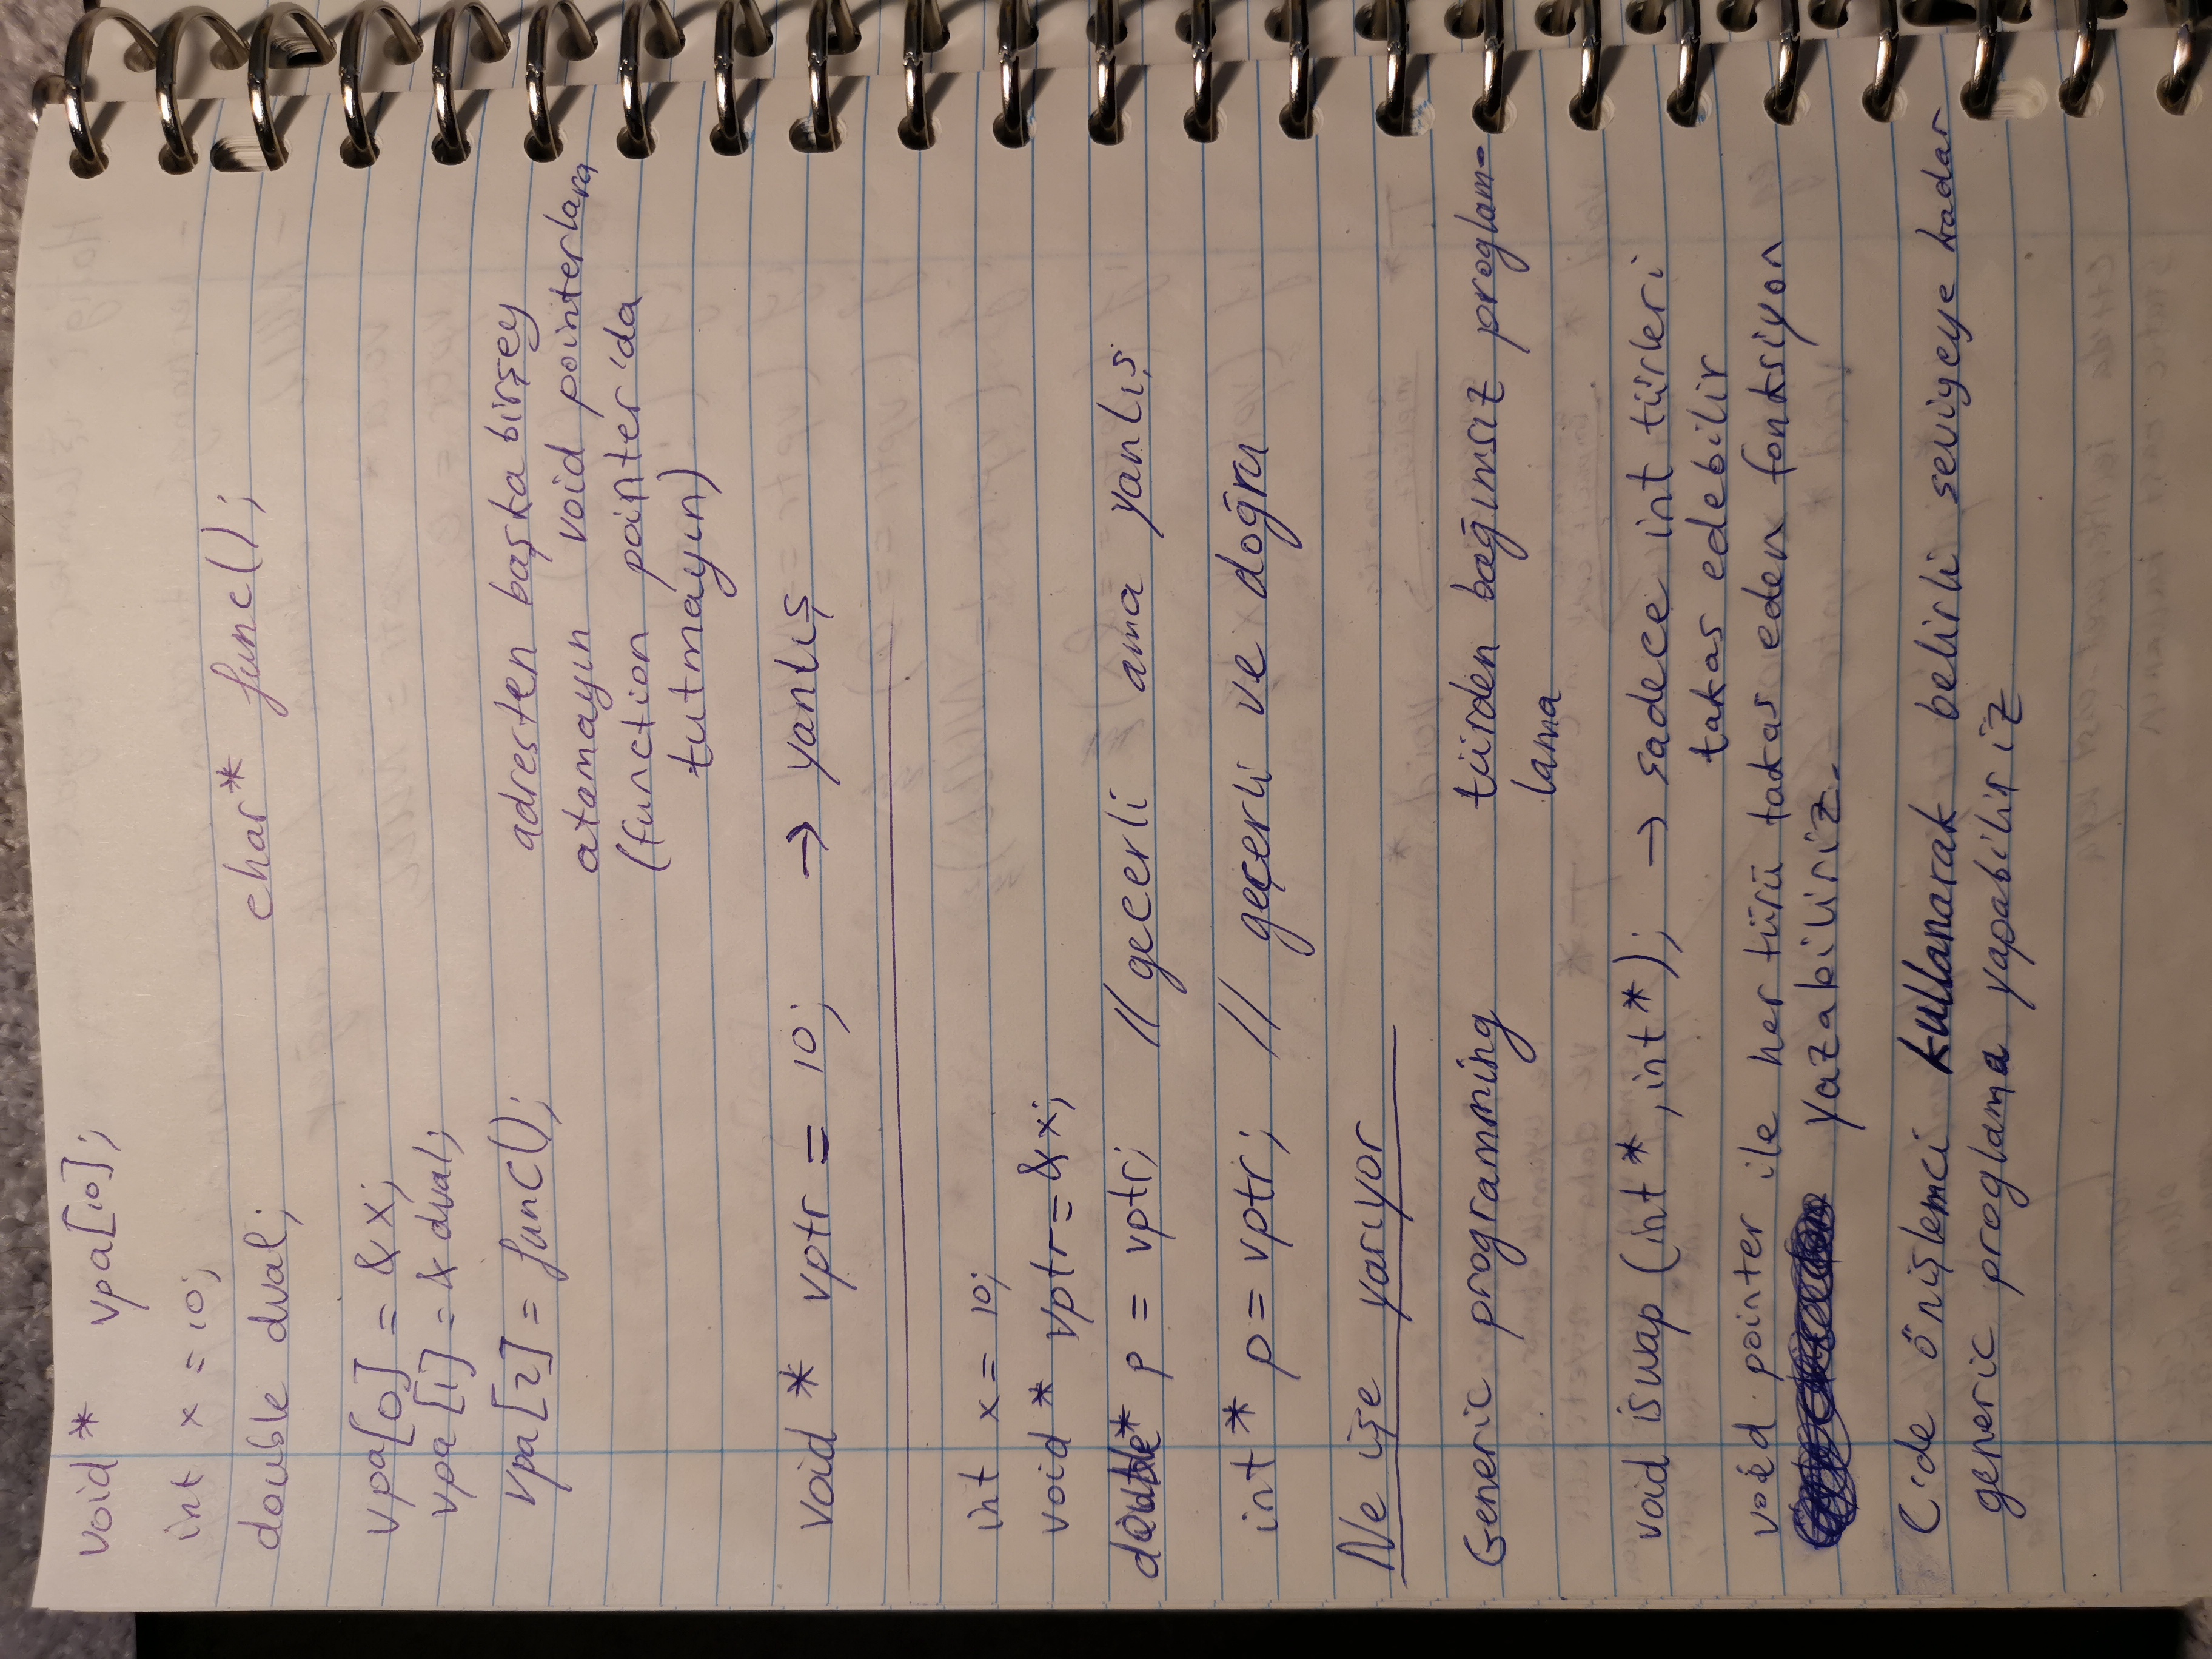 void * vpa[10];
int x = 10;
double dval; char* func();
vpa[0] = &x;
vpa[1] = & dval;
vpa[2] = func();
adresten başka birşey
atamayın void pointerlara
(function pointer'da
tutmayın)
void * vptr = 10; → yanlış
int x = 10;
void * vptr = &x;
double* p = vptr; // gecerli ama yanlış
int * p = vptr; // geçerli ve doğru
Ne işe yarıyor
Generic programming türden bağımsız proglam-
lama
void iswap (int *, int *); → sadece int türleri
takas edebilir
void pointer ile her türü takas eden fonksiyon
yazabiliriz.
C'de önişlemci kullanarak belirli seviyeye kadar
generic proglama yapabiliriz